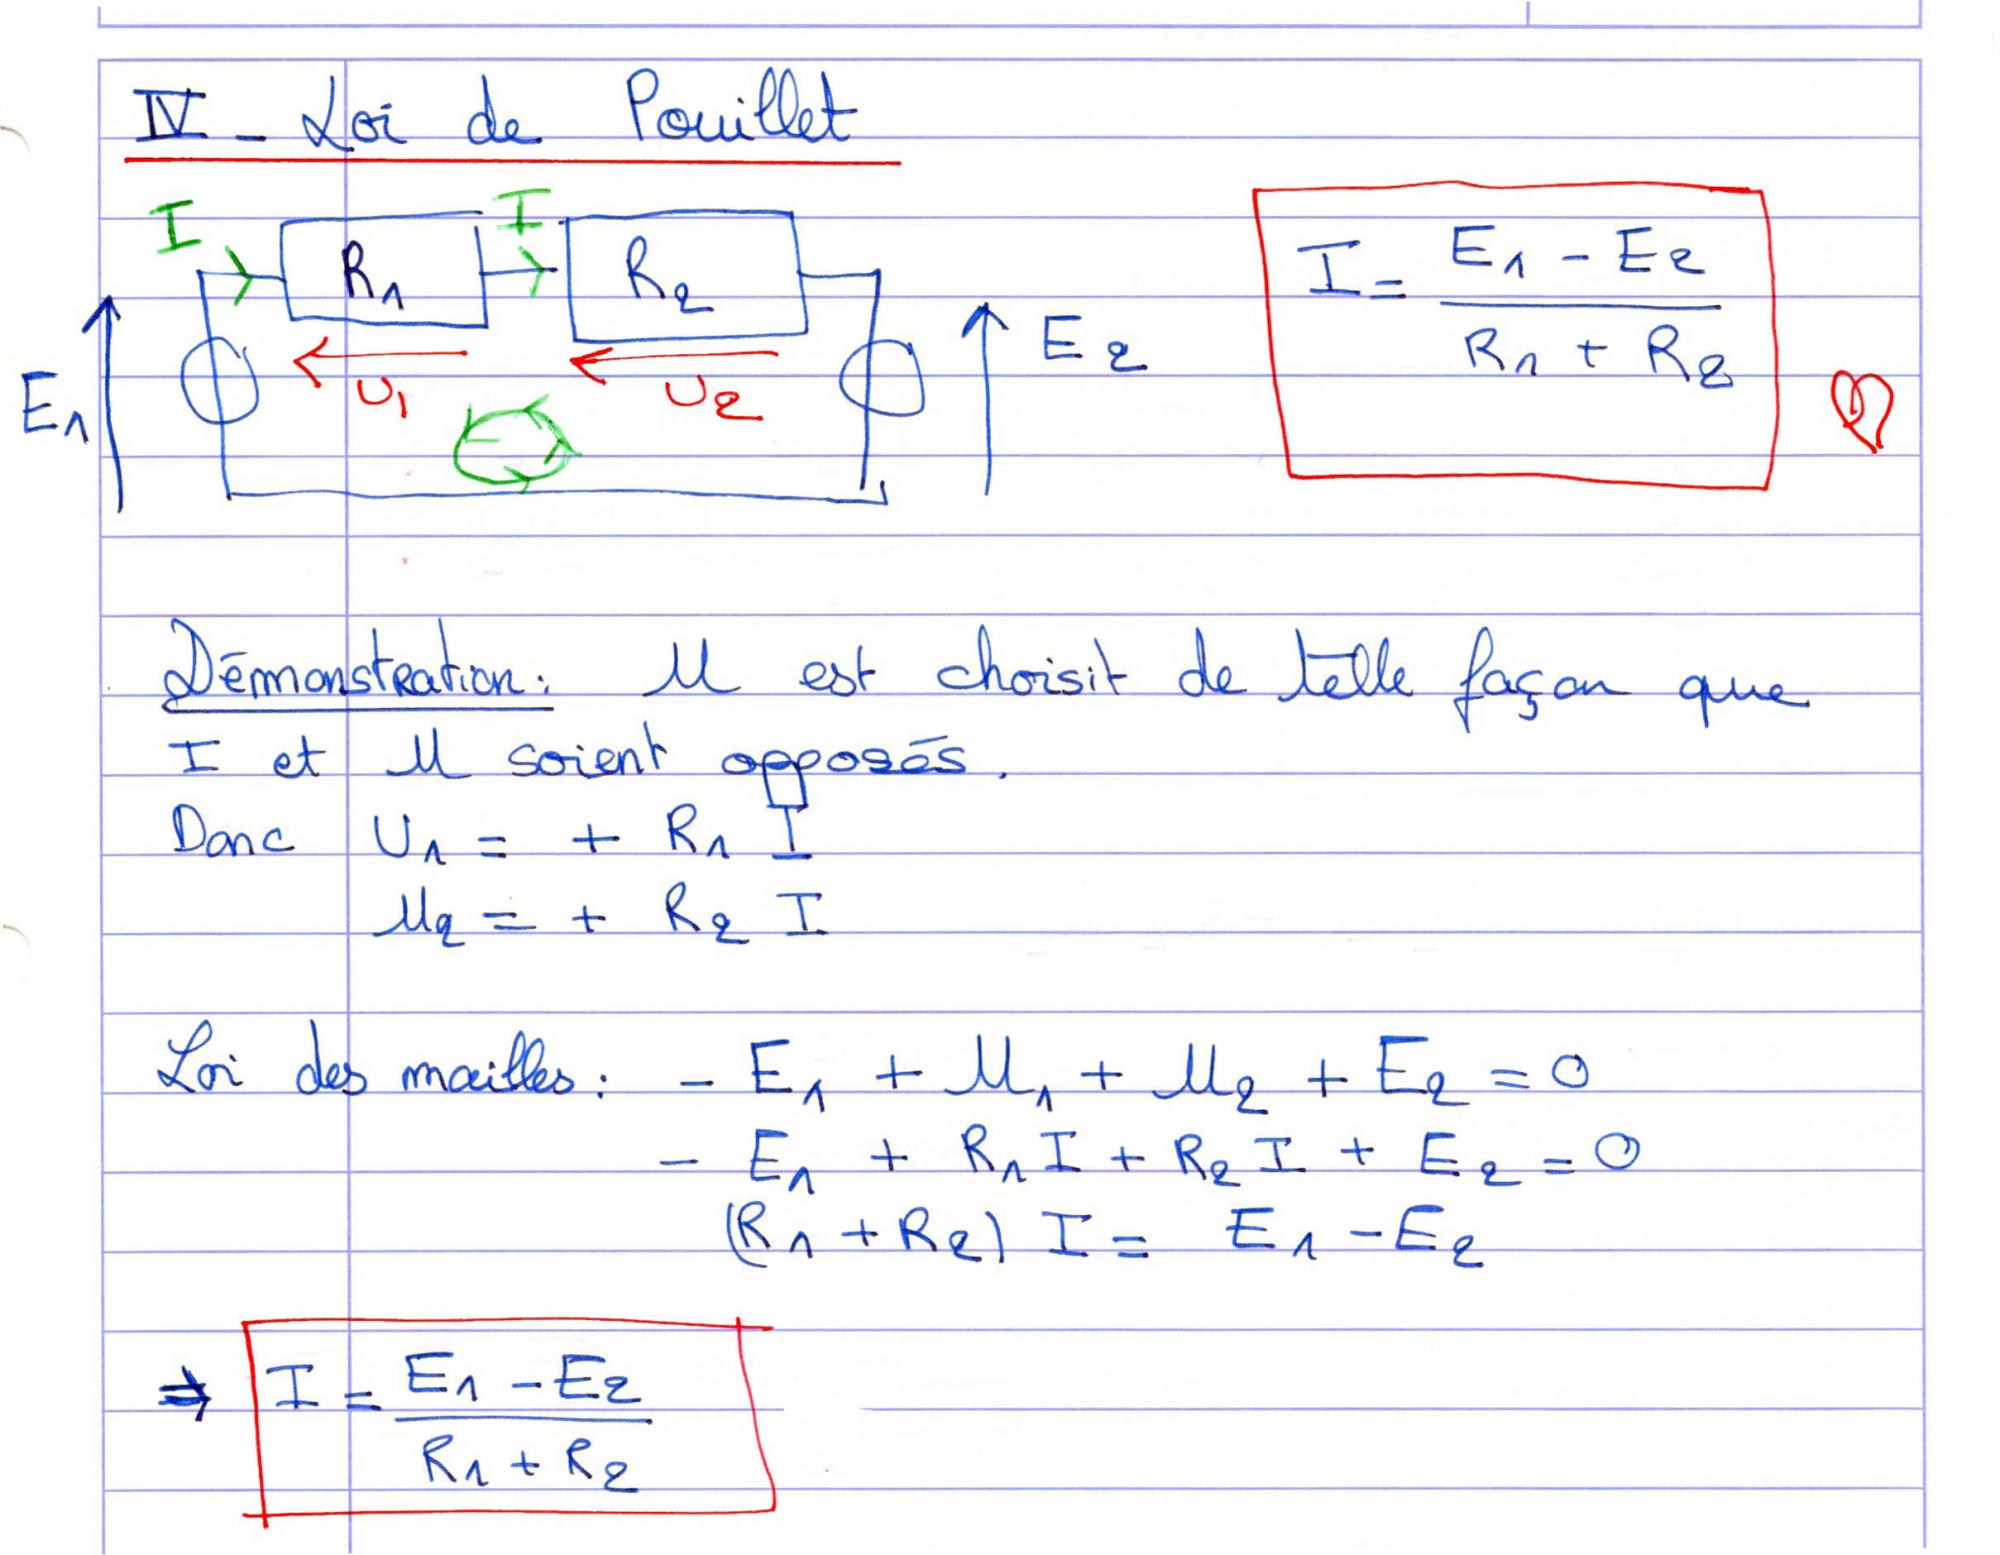 IV - Loi de Pouillet
I I
R1 R2
E1 U1 U2 E2
I = (E1 - E2) / (R1 + R2)
Démonstration : U est choisit de telle façon que
I et U soient opposés.
Donc U1 = + R1 I
U2 = + R2 I
Loi des mailles : - E1 + U1 + U2 + E2 = 0
- E1 + R1 I + R2 I + E2 = 0
(R1 + R2) I = E1 - E2
⇒ I = (E1 - E2) / (R1 + R2)